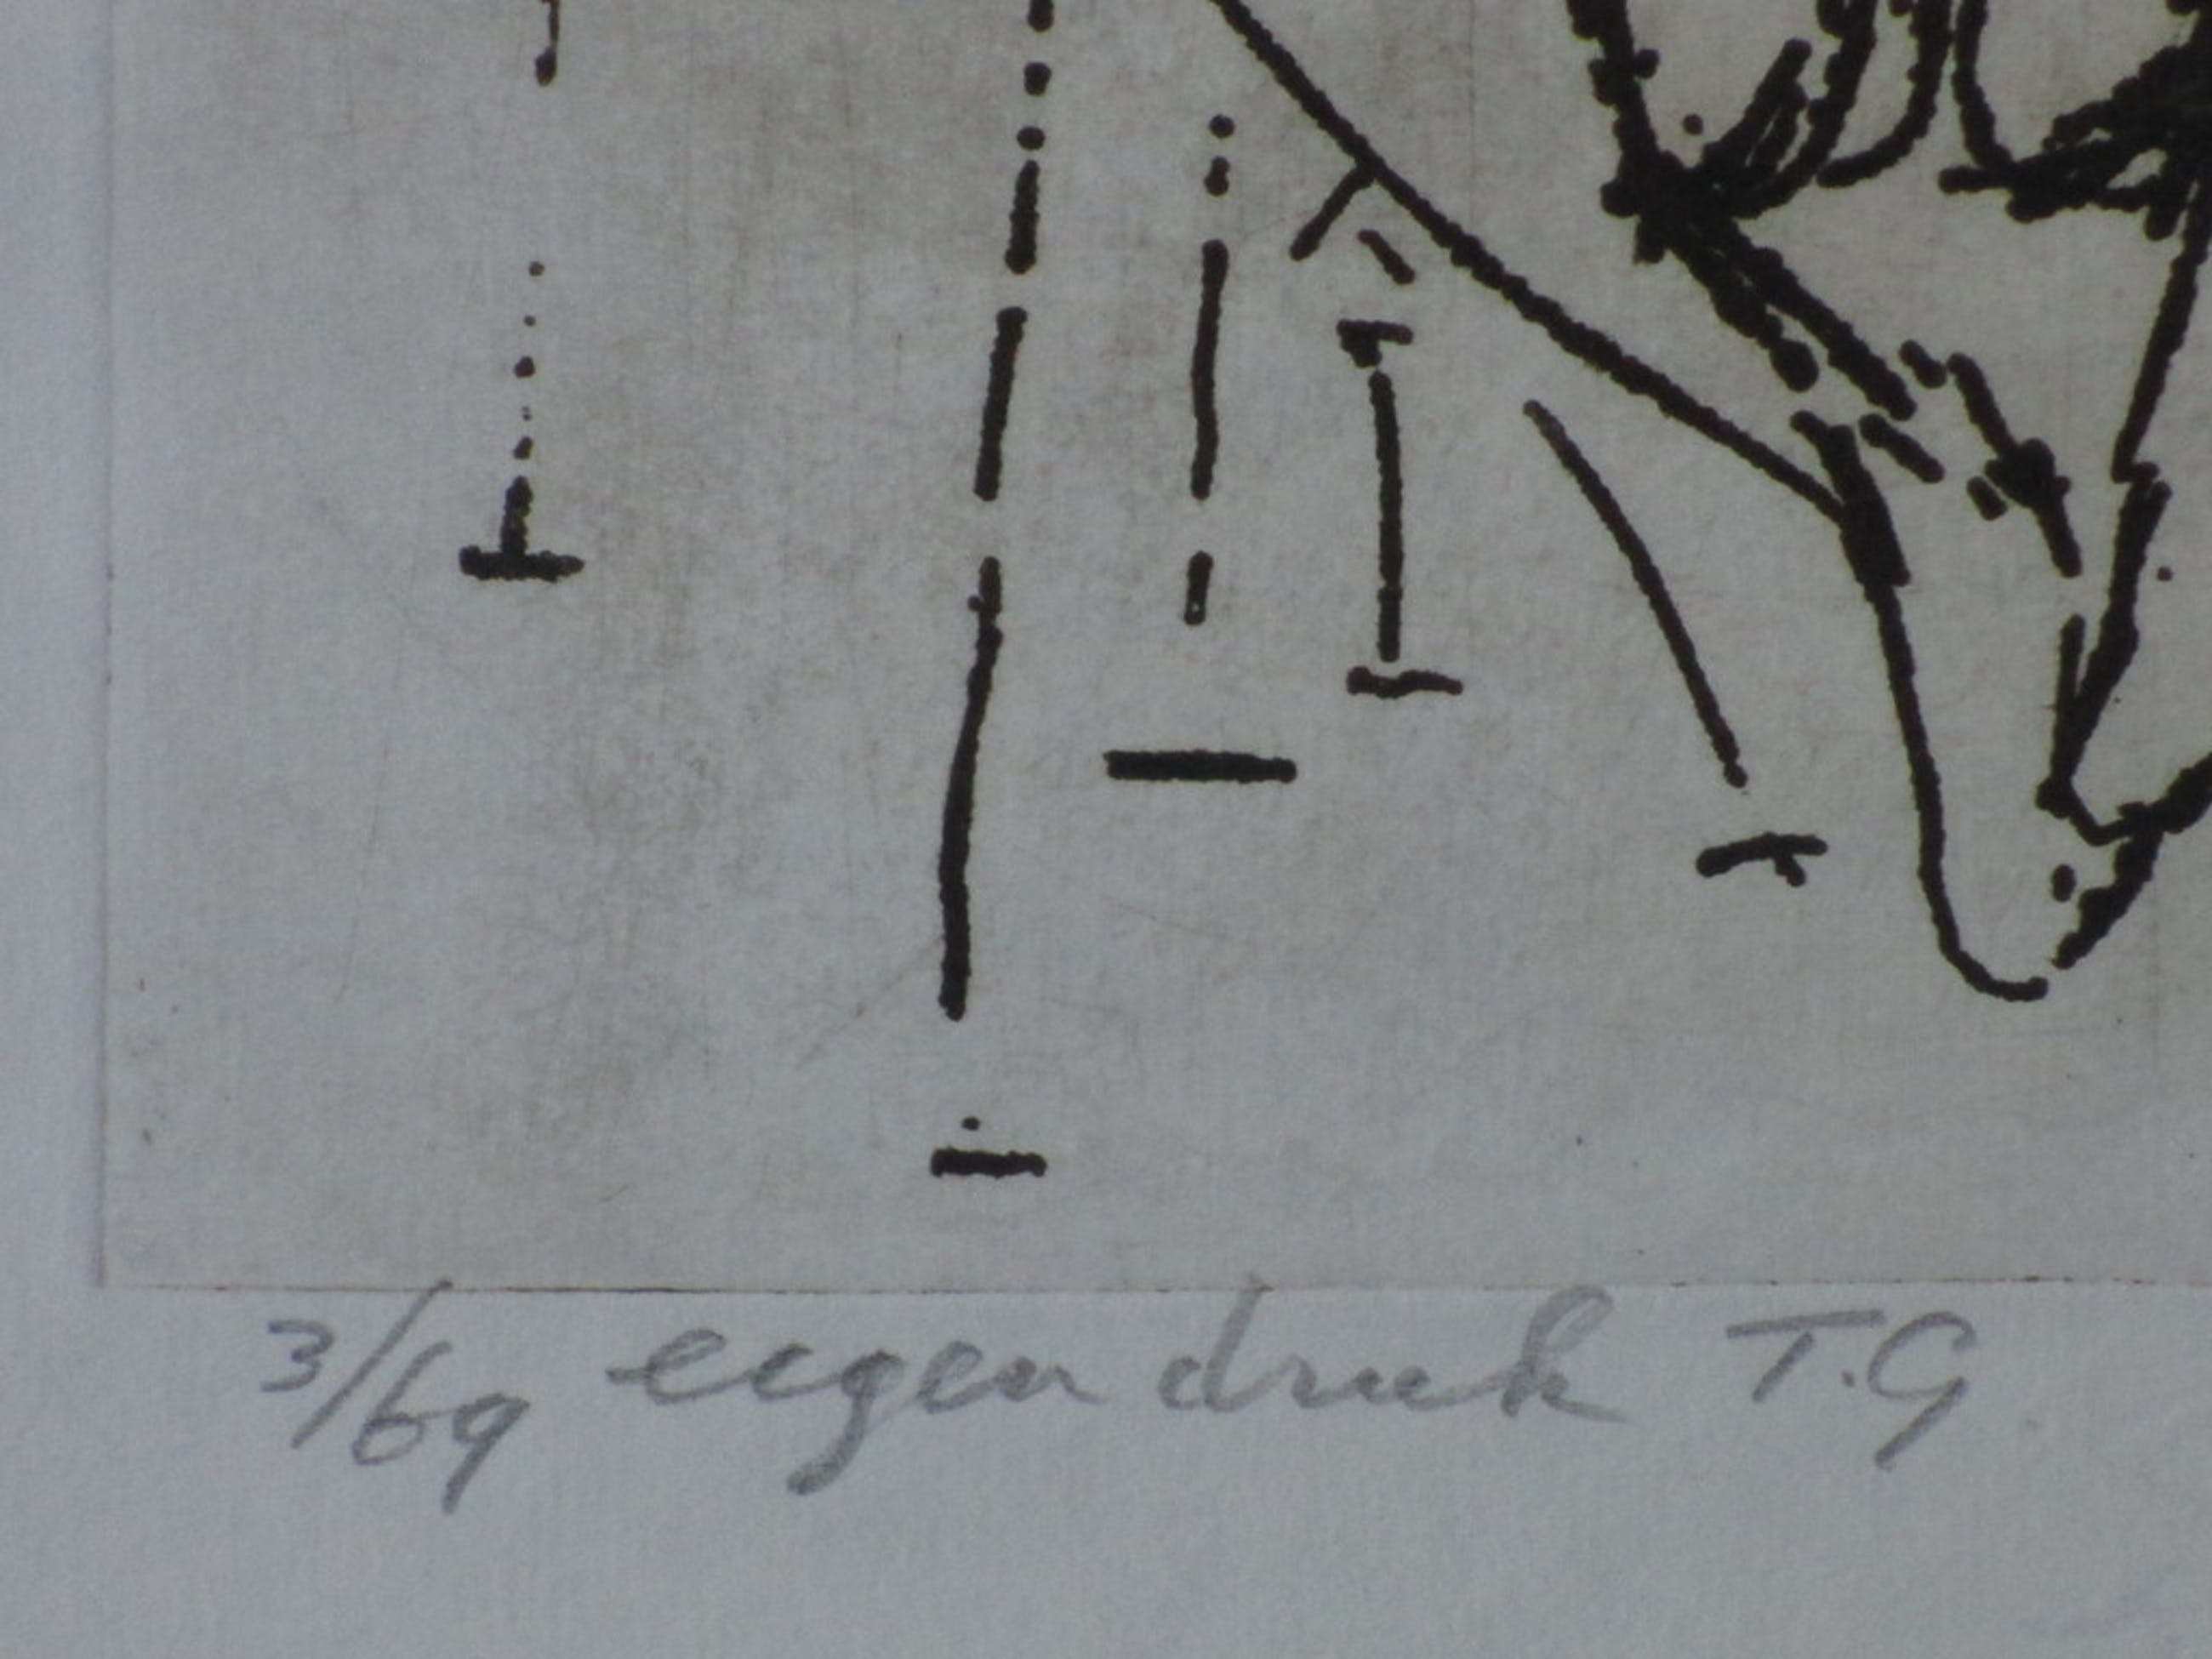 3/69 eigen druk T.G